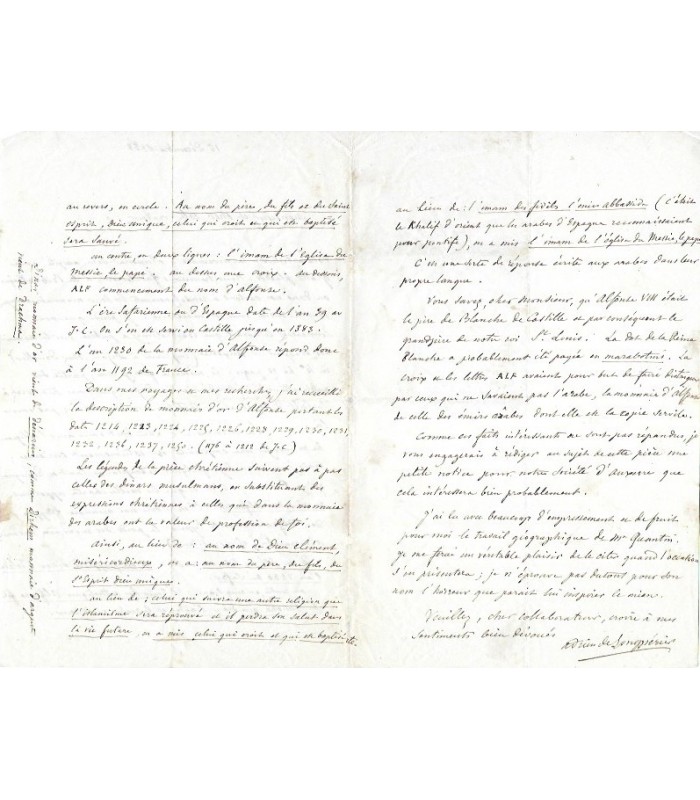 au revers, en cercle. Au nom du père, du fils et du Saint
esprit, Dieu unique, celui qui croit et qui est baptisé
sera sauvé.
au centre en deux lignes : l'imam de l'Eglise du
Messie, le pape. au dessus une croix. au dessous,
ALF commencement du nom d'Alfonse.
L'ère Safarienne ou d'Espagne date de l'an 39 av
J.-C. On s'en est servi en Castille jusqu'en 1383.
L'an 1230 de la monnaie d'Alfonse répond donc
à l'an 1192 de France.
Dans mes voyages et mes recherches, j'ai recueilli
la description de monnaies d'or d'Alfonse portant les
dates 1214, 1223, 1224, 1225, 1226, 1228, 1229, 1230, 1231,
1232, 1236, 1237, 1250. (1176 à 1212 de J-C)
Les légendes de la pièce chrétienne suivent pas à pas
celles des dinars musulmans, en substituant des
expressions chrétiennes à celles qui dans la monnaie
des arabes ont la valeur de profession de foi.
Ainsi, au lieu de : au nom de Dieu clément,
miséricordieux, on a : au nom du père, du fils, du
St Esprit dieu unique.
au lieu de : celui qui suivra une autre religion que
l'islamisme sera réprouvé et il perdra son salut dans
la vie future, on a mis celui qui croit et qui est baptisé etc.
Dinar monnaie d'or vient de denarius, comme dirhem monnaie d'argent
vient de drachme
au lieu de : l'imam des fidèles l'émir abbasside (c'était
le Khalif d'orient que les arabes d'Espagne reconnaissaient
pour pontife), on a mis l'imam de l'église du Messie, le pape
C'est une sorte de réponse écrite aux arabes dans leur
propre langue.
Vous savez, cher Monsieur, qu'Alfonse VIII était
le père de Blanche de Castille et par conséquent le
grandpère de notre roi St. Louis. La dot de la Reine
Blanche a probablement été payée en marabotins. La
croix et les lettres ALF avaient pour but de faire distinguer
par ceux qui ne savaient pas l'arabe, la monnaie d'Alfonse
de celle des émirs arabes dont elle est la copie servile.
Comme ces faits intéressants ne sont pas répandus, je
vous engagerais à rédiger au sujet de cette pièce une
petite notice pour notre Société d'Auxerre que
cela intéressera bien probablement.
J'ai lu avec beaucoup d'empressement et de fruit
pour moi le travail géographique de Mr Quantin.
Je me ferai un véritable plaisir de le citer quand l'occasion
s'en présentera ; je n'éprouve pas du tout pour son
nom l'horreur que paraît lui inspirer le mien.
Veuillez, cher collaborateur, croire à mes
sentiments bien dévoués
Adrien de Longpérier